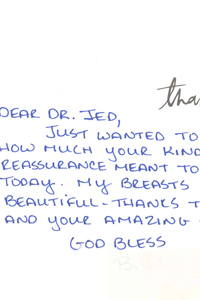 tha
DEAR DR. JED,
JUST WANTED TO
HOW MUCH YOUR KIND
REASSURANCE MEANT TO
TODAY. MY BREASTS
BEAUTIFUL - THANKS T
AND YOUR AMAZING
GOD BLESS